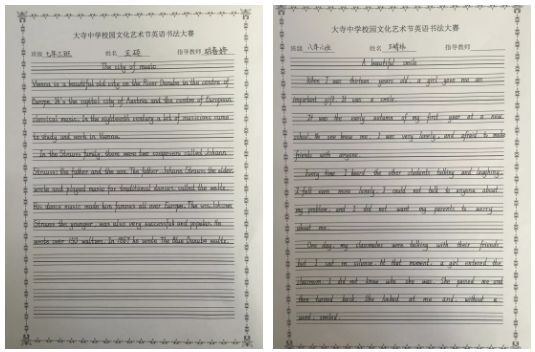 大寺中学校园文化艺术节英语书法大赛
班级 七年三班 姓名 王硕 指导教师
The city of music
Vienna is a beautiful old city on the River Danube in the centre of
Europe. It's the capital city of Austria and the centre of European
classical music. In the eighteenth century a lot of musicians came
to study and work in Vienna.
In the Strauss family, there were two composers called Johann
Strauss: the father and the son. The father, Johann Strauss the elder,
wrote and played music for traditional dances, called the waltz.
His dance music made him famous all over Europe. The son, Johann
Strauss the younger, was also very successful and popular. He
wrote over 150 waltzes. In 1867 he wrote The Blue Danube waltz.
大寺中学校园文化艺术节英语书法大赛
班级 姓名 指导教师
A beautiful smile
When I was thirteen years old, a girl gave me an
important gift. It was a smile.
It was the early autumn of my first year at a new
school. No one knew me. I was very lonely, and afraid to make
friends with anyone.
Every time I heard the other students talking and laughing,
I felt even more lonely. I could not talk to anyone about
my problem, and I did not want my parents to worry
about me.
One day, my classmates were talking with their friends,
but I sat in silence. At that moment, a girl entered the
classroom. I did not know who she was. She passed me and
then turned back. She looked at me and, without a
word, smiled.